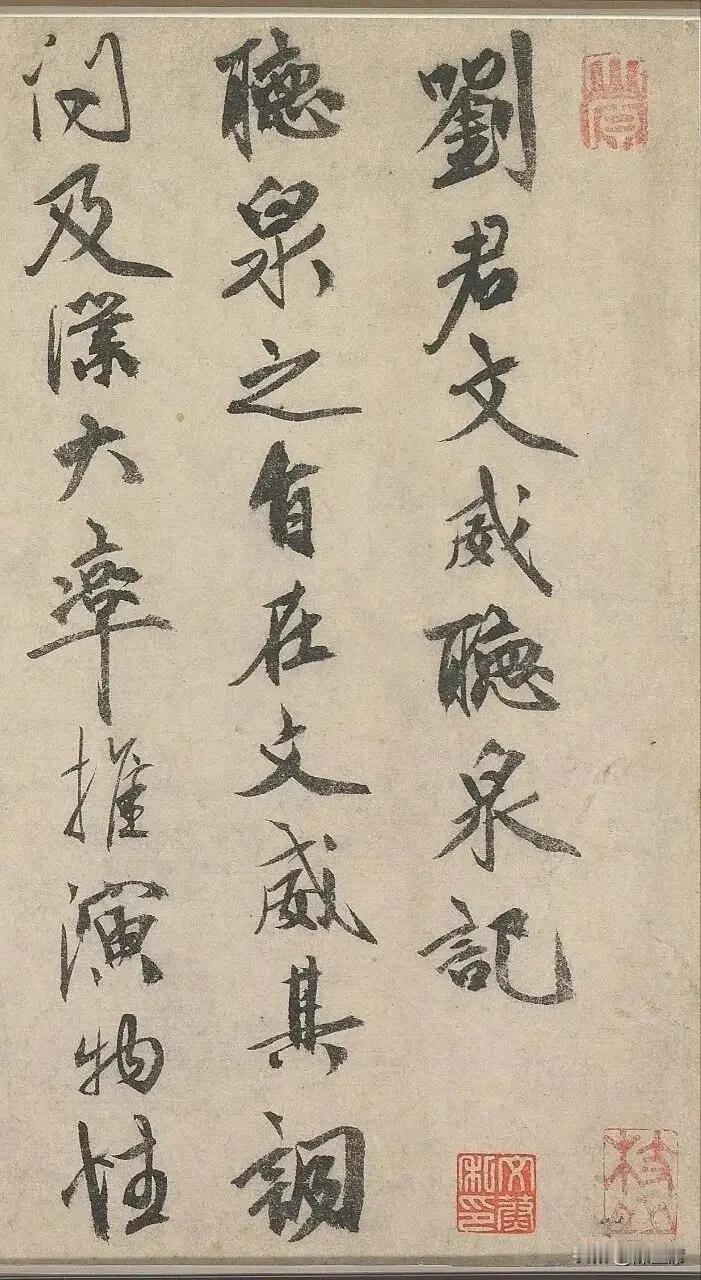 劉君文威聽泉記
聽泉之自在文威其詞
及大率推演物性
枝山